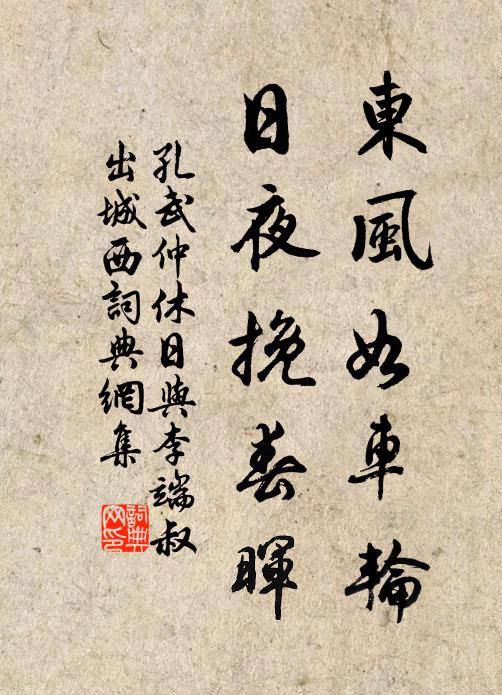 東風如車輪
日夜挽春暉
孔武仲休日與李端叔
出城西詞典網集
詞典
网印